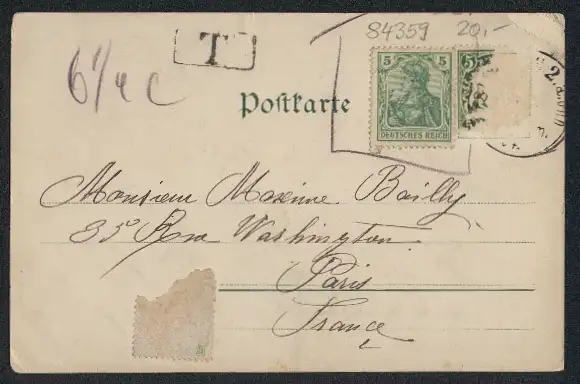 84359 20,-
T
6 1/4 c
Postkarte
5 5
DEUTSCHES REICH
5
2.
Monsieur Maxime Bailly
35 Rue Washington
Paris
France